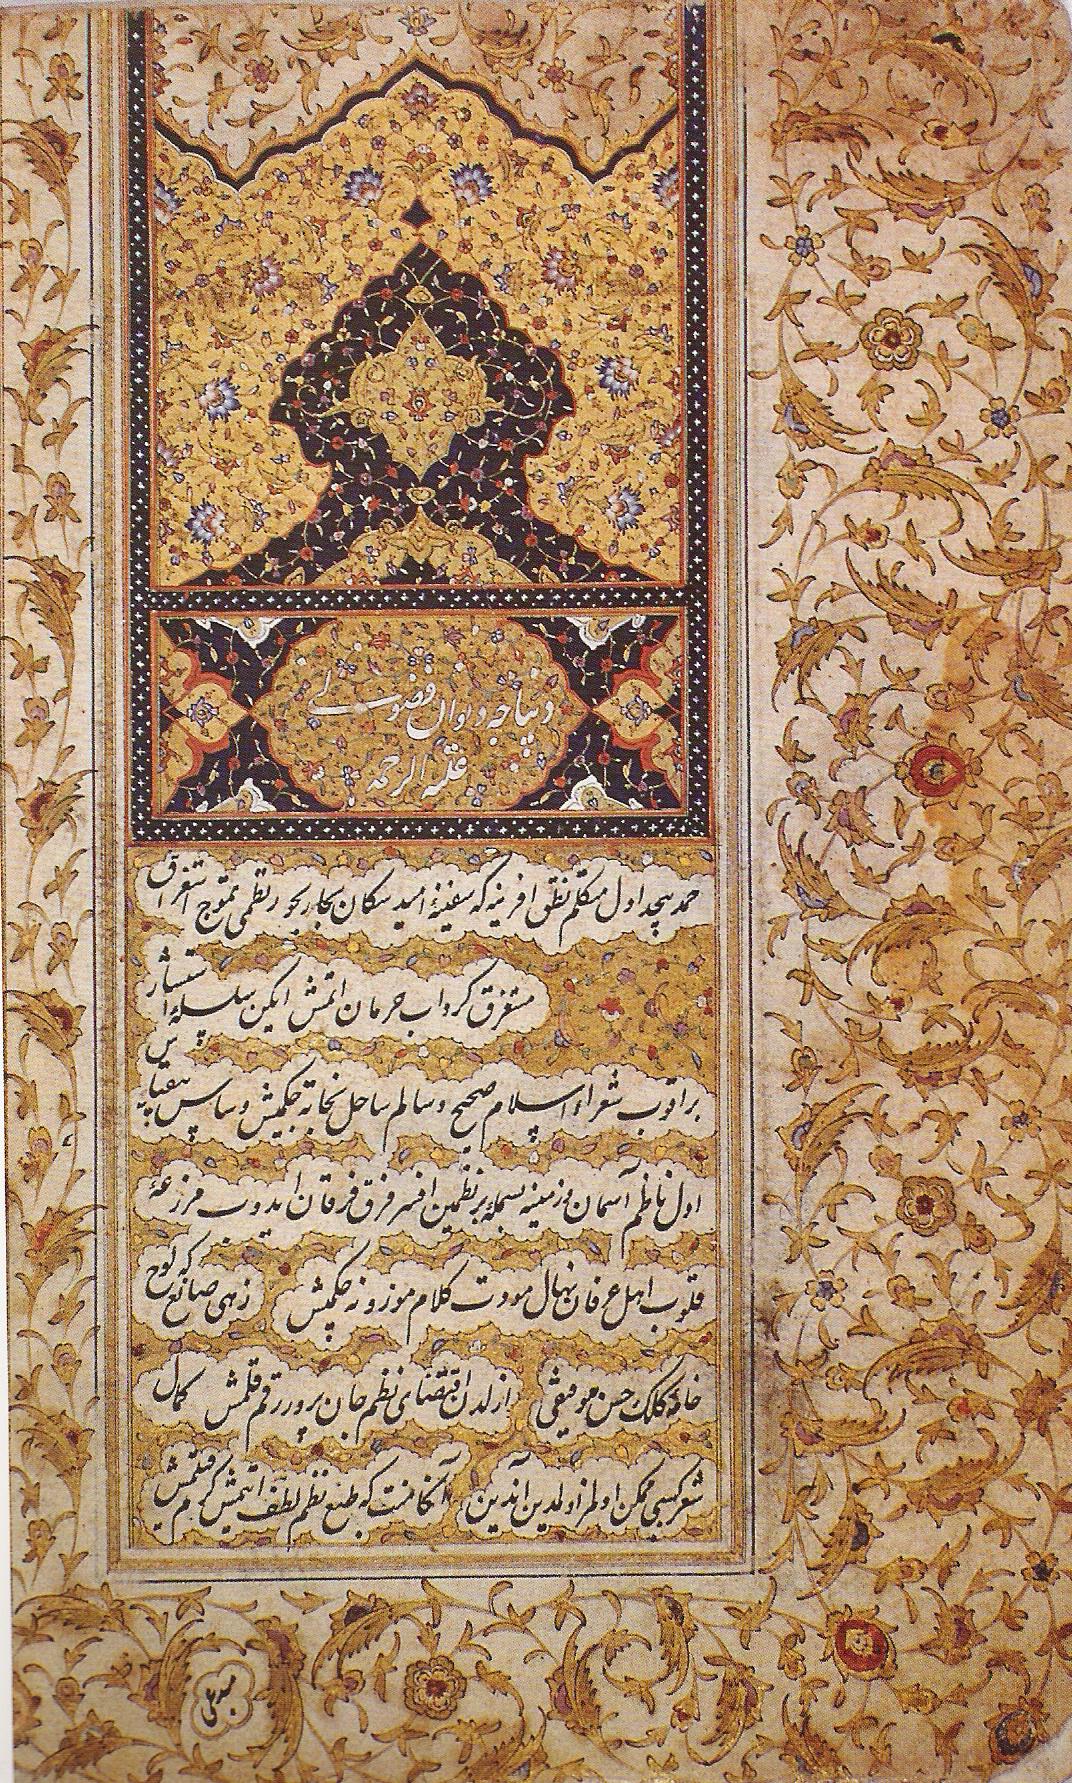 دیباچه دیوان فضولی
علیه الرحمه
حمد بیحد اول متکلم نطق افرینه که سفینهٔ امید سکان بحار بحور نظمی تموج استغراق
مستغرق کرداب حرمان اتمش ایکن سلسلهٔ استثنا
بر اقوب شعراء اسلام صحیح و سالم ساحل نجاته چکمیش و سپاس بیقیاس
اول ناظم آسمان و زمینه بسملهٔ بر نظمین افسر فرق فرقان ایدوب مزرعهٔ
قلوب اهل عرفانه نهال مودت کلام موزونه چکمیش زهی صانع که لوح
خامهٔ کلک حسن توفیقی ازلدن اقتضای نظم جان پرور رقم قلمش کمال
شعر کسبی ممکن اولمز اولدین آندین آنکا منت که طبع نظم لطف اتمش کرم قیلمش